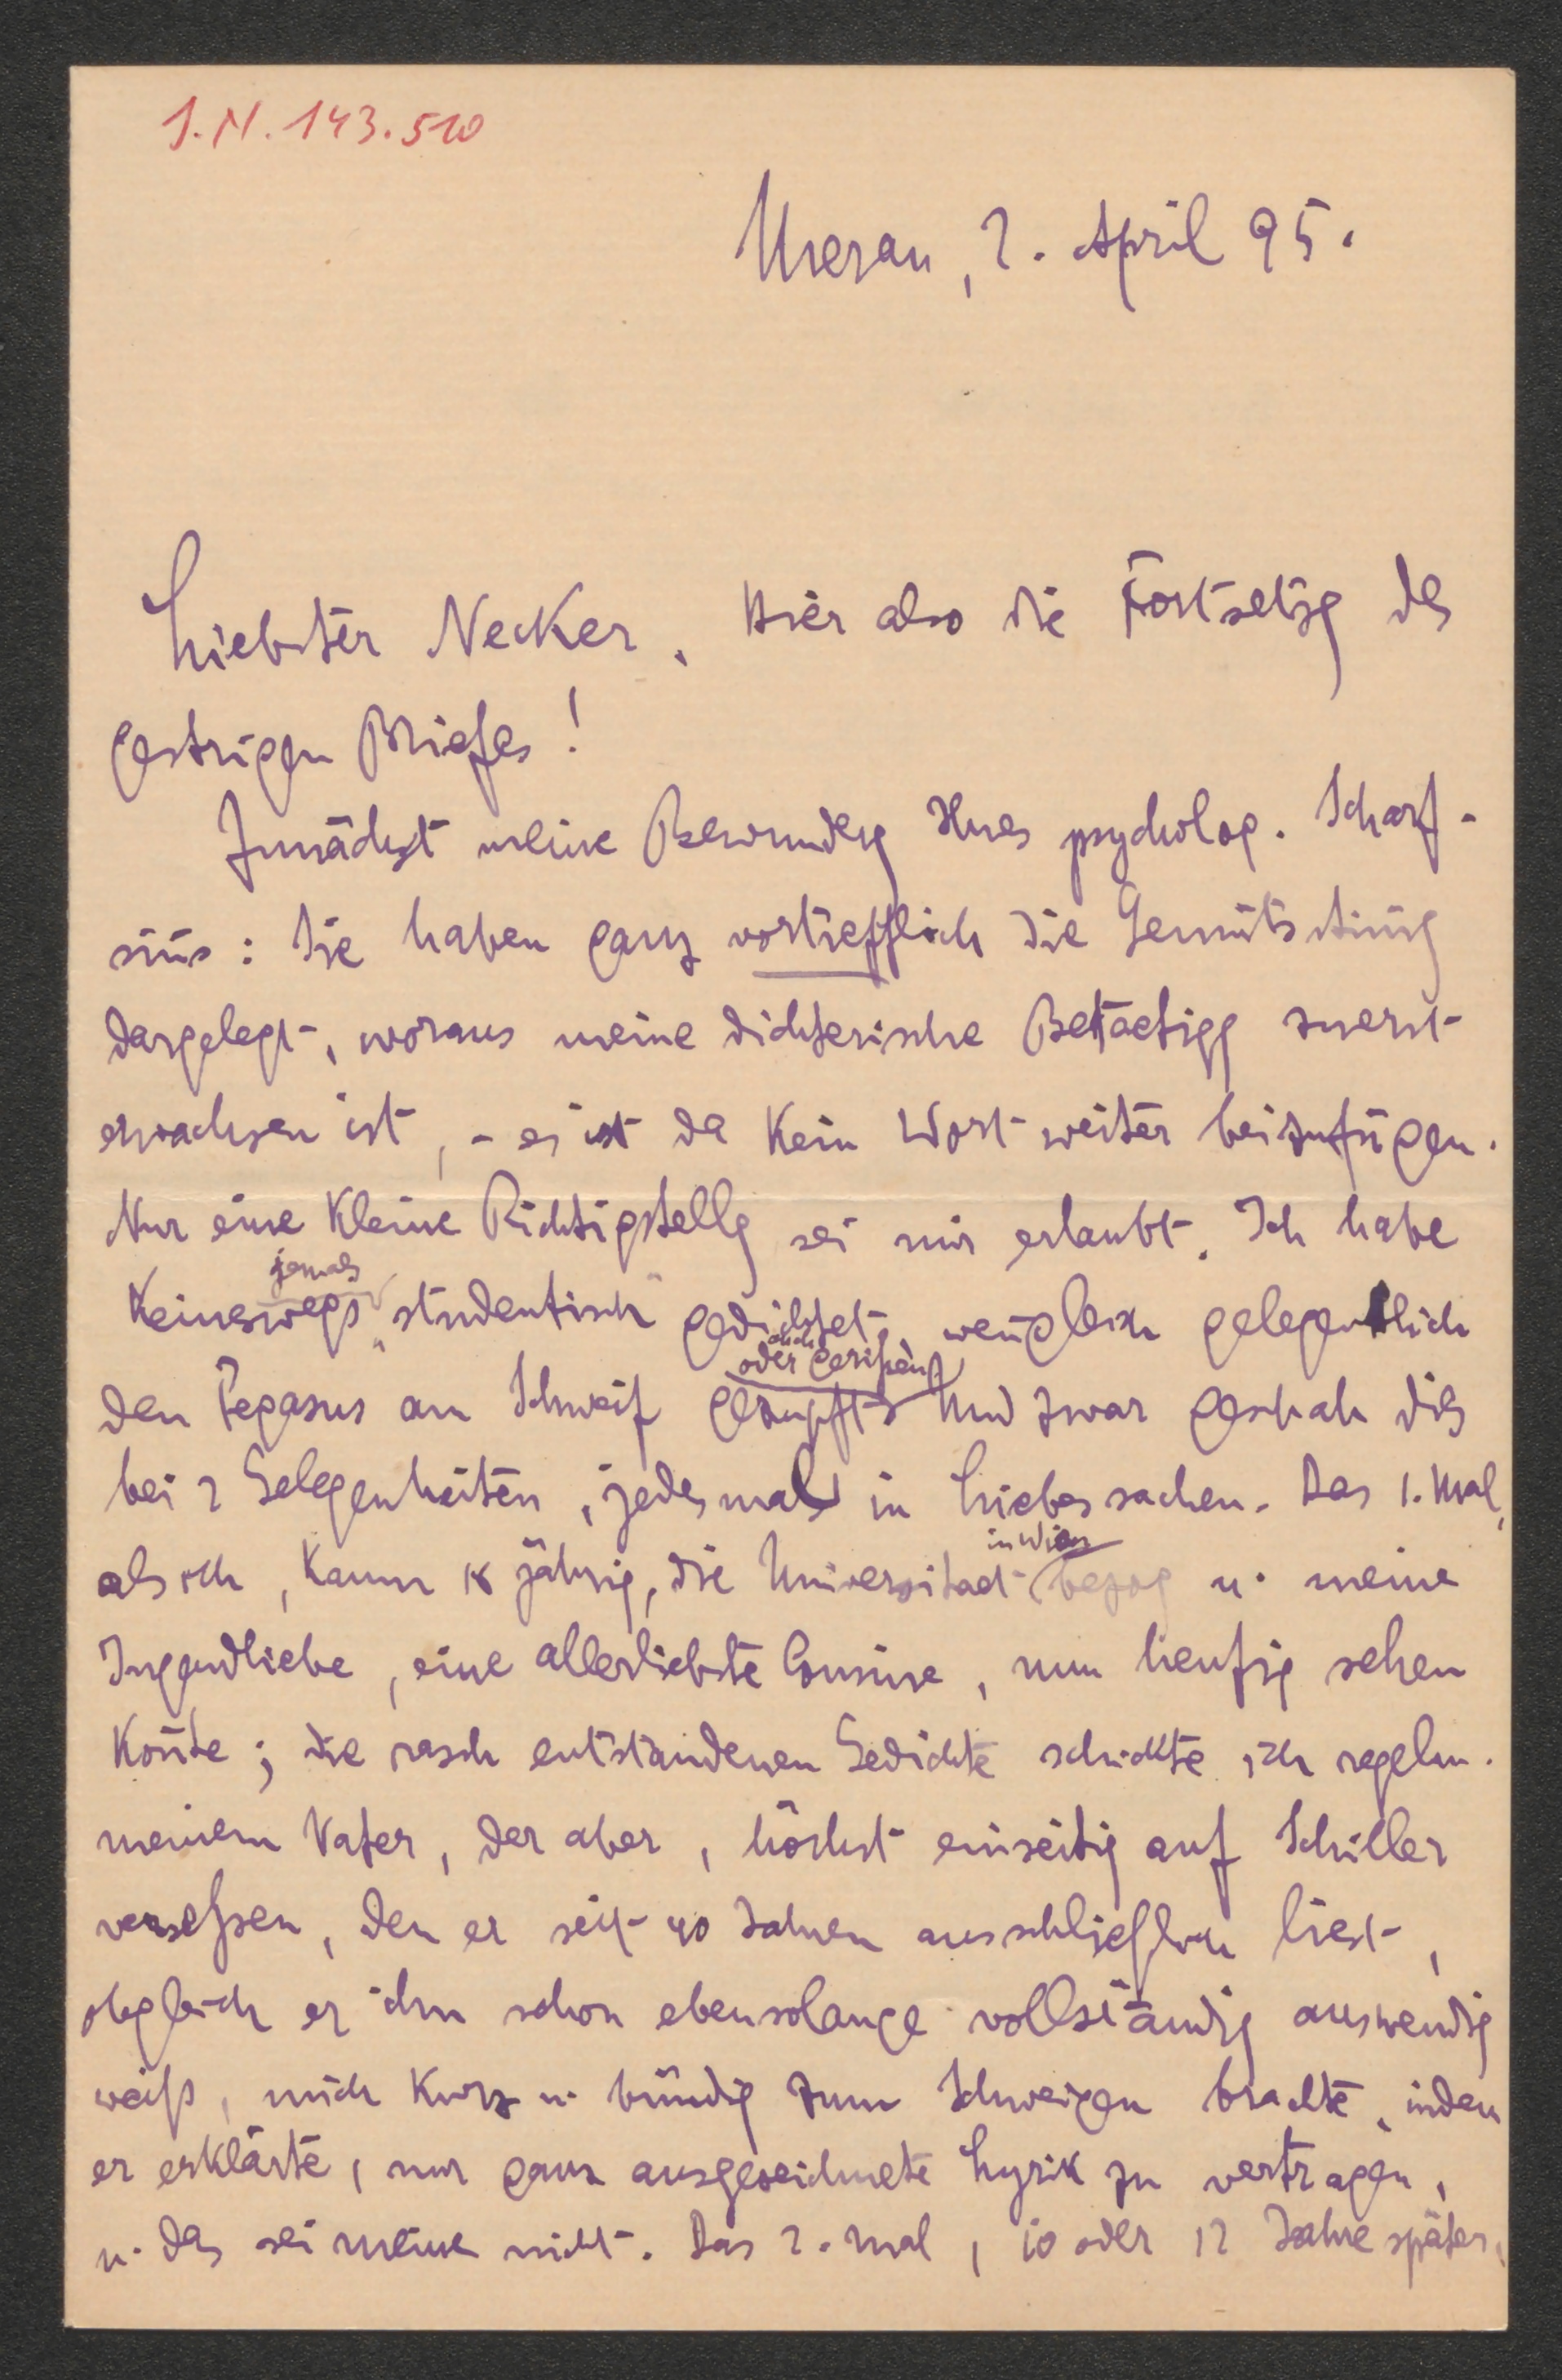 I.N. 143.510
Meran, 2. April 95.
Liebster Necker, Hier also die Fortsetzg des
gestrigen Briefes!
Zunächst meine Bewunderg Ihres psycholog. Scharf-
sin̄s: Sie haben ganz vortrefflich die Gemütsstim̄g
dargelegt, woraus meine dichterische Betaetigg zuerst
erwachsen ist, – es ist da kein Wort weiter beizufügen.
Nur eine kleine Richtigstellg sei mir erlaubt. Ich habe
jemals
keineswegs „studentisch“ gedichtet, wen̄gleich gelegentlich
oder
den Pegasus am Schweif gerupft Und zwar geschah dies
bei 2 Gelegenheiten, jedesmal in Liebessachen. Das 1. Mal,
in Wien
als ich, kaum 18 jährig, die Universitaet bezog u. meine
Jugendliebe, eine allerliebste Cousine, nun heufig sehen
kon̄te; die rasch entstandenen Gedichte schickte ich regelm.
meinem Vater, der aber, höchst einseitig auf Schiller
versessen, den er seit 40 Jahren ausschließlich liest,
obgleich er ihn schon ebensolange vollständig auswendig
weiß, mich kurz u. bündig zum Schweigen brachte, indem
er erklärte, nur ganz ausgezeichnete Lyrik zu vertragen,
u. das sei meine nicht. Das 2. Mal, 10 oder 12 Jahre später,